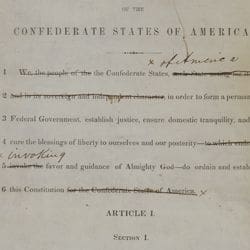 OF THE
CONFEDERATE STATES OF AMERICA
x of America
1 We, the people of the Confederate States, each State acting for it
2 and in its sovereign and independent character, in order to form a perma
3 Federal Government, establish justice, ensure domestic tranquility, and
4 cure the blessings of liberty to ourselves and our posterity—to which ende
x invoking
5 invoke the favor and guidance of Almighty God—do ordain and estab
6 this Constitution for the Confederate States of America. x
ARTICLE I.
SECTION 1.